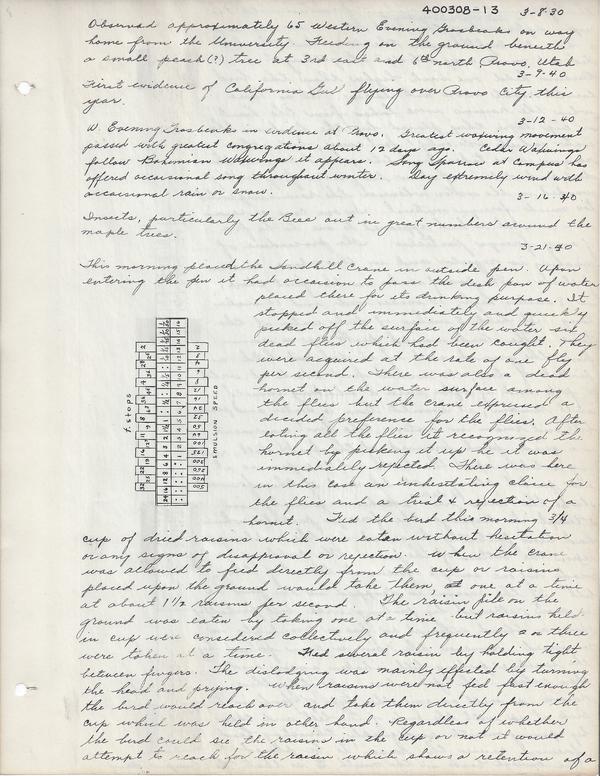 400308-13 3-8-30
Observed approximately 65 Western Evening Grosbeaks on way
home from the University. Feeding on the ground beneath
a small peach(?) tree at 3rd east and 6th north Provo, Utah
3-9-40
First evidence of California Gull flying over Provo City this
year.
3-12-40
W. Evening Grosbeaks in evidence at Provo. Greatest waxwing movement
passed with greatest congregations about 12 days ago. Cedar Waxwings
follow Bohemian Waxwings it appears. Song Sparrow at Campus has
offered occasional song throughout winter. Day extremely wind with
occasional rain or snow.
3-16-40
Insects, particularly the Bees out in great numbers around the
maple trees.
3-21-40
This morning placed the Sandhill Crane in outside pen. Upon
entering the pen it had occasion to pass the dish pan of water
placed there for its drinking purpose. It
stopped and immediately and quickly
picked off the surface of the water six
dead flies which had been caught. They
were acquired at the rate of one fly
per second. There was also a dead
hornet on the water surface among
the flies but the crane expressed a
decided preference for the flies. After
eating all the flies it recognized the
hornet by picking it up he it was
immediately rejected. There was here
in this case an unhesitating choice for
the flies and a trial & rejection of a
hornet. Fed the bird this morning 3/4
f. stops
EMULSION SPEED
cup of dried raisins which were eaten without hesitation
or any signs of disapproval or rejection. When the crane
was allowed to feed directly from the cup or raisins
placed upon the ground would take them, one at a time
at about 1 1/2 raisins per second. The raisin pile on the
ground was eaten by taking one at a time but raisins held
in cup were considered collectively and frequently 2 or three
were taken at a time. Fed several raisin by holding tight
between fingers. The dislodging was mainly effected by turning
the head and prying. When raisins were not fed fast enough
the bird would reach over and take them directly from the
cup which was held in other hand. Regardless of whether
the bird could see the raisins in the cup or not it would
attempt to reach for the raisin which shows a retention of a